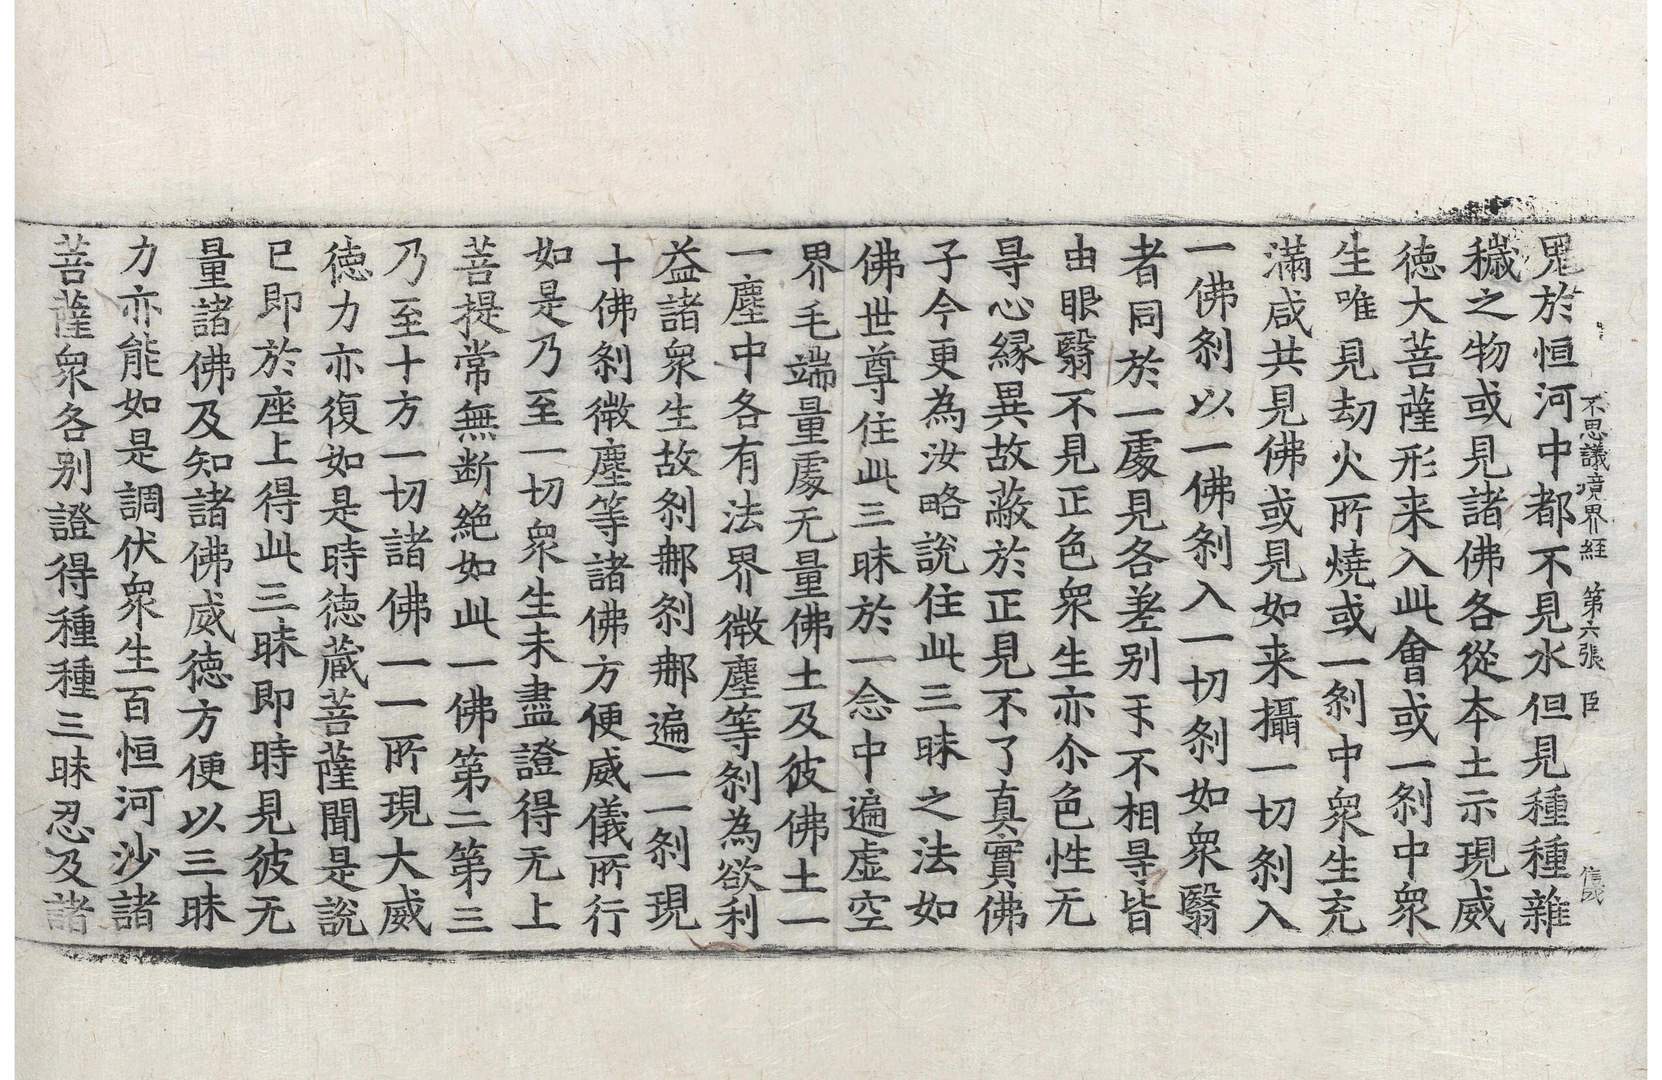 不思議境界経　第六張　臣
鬼於恒河中都不見水但見種種雜
穢之物或見諸佛各從夲土示現威
徳大菩薩形来入此會或一刹中衆
生唯見劫火所燒或一刹中衆生充
滿咸共見佛或見如来攝一切刹入
一佛刹以一佛刹入一切刹如衆翳
者同於一處見各差别㸦不相㝵皆
由眼翳不見正色衆生亦尒色性无
㝵心縁異故蔽於正見不了真實佛
子今更為汝略說住此三昧之法如
佛世尊住此三昧於一念中遍虚空
界毛端量處无量佛土及彼佛土一
一塵中各有法界微塵等刹為欲利
益諸衆生故刹郍刹郍遍一一刹現
十佛刹微塵等諸佛方便威儀所行
如是乃至一切衆生未盡證得无上
菩提常無断絶如此一佛第二第三
乃至十方一切諸佛一一所現大威
徳力亦復如是時徳蔵菩薩聞是說
已即於座上得此三昧即時見彼无
量諸佛及知諸佛威徳方便以三昧
力亦能如是調伏衆生百恒河沙諸
菩薩衆各别證得種種三昧忍及諸